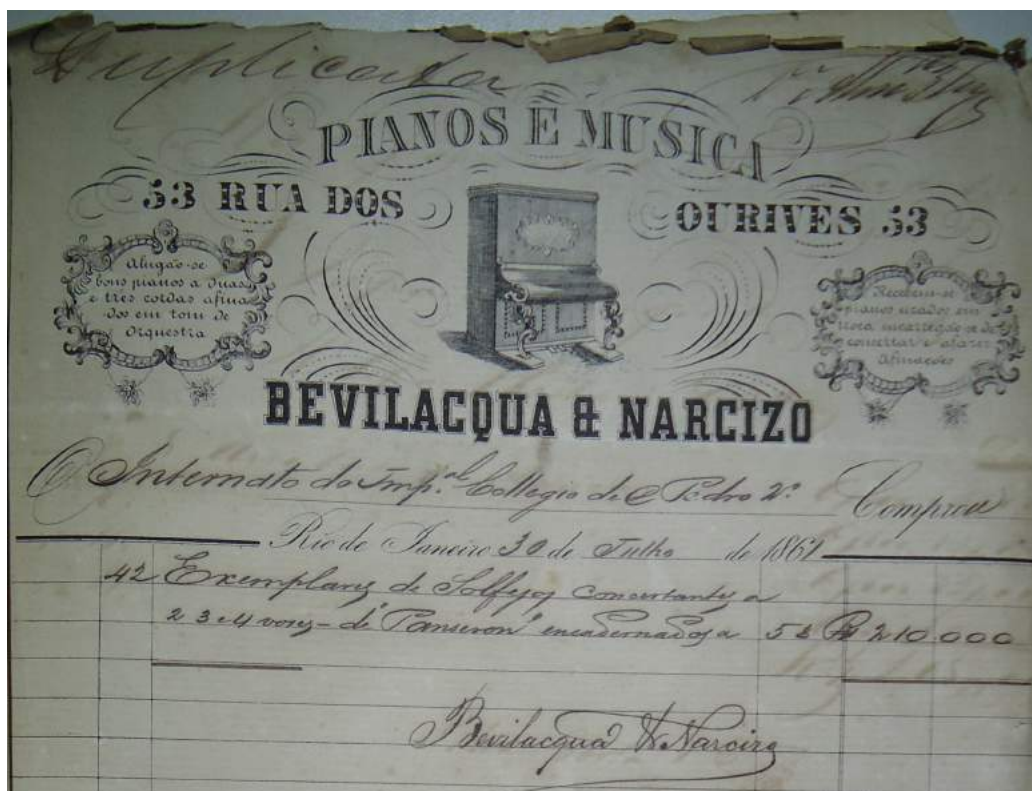 Duplicata
PIANOS E MUSICA
53 RUA DOS OURIVES 53
Alugão-se
bons pianos a duas
e tres cordas afina
dos em tom de
Orquestra
Recebem-se
pianos uzados em
troca, encarregão-se de
concertar e afazer
Afinacões
BEVILACQUA & NARCIZO
O Internato do Imp.al Collegio de Pedro 2º Comprou
Rio de Janeiro 30 de Julho de 1861
42 Exemplares de Solfejos Concertantes a
2 3 e 4 vozes - de "Panseron" encadernados a 5$ R 210.000
Bevilacqua & Narcizo